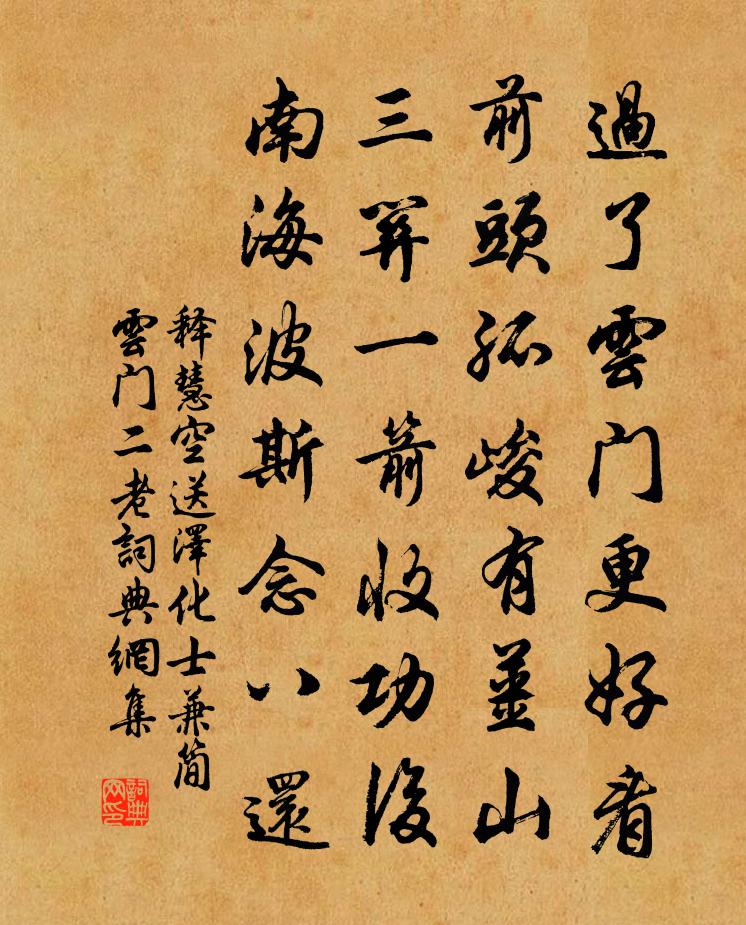 過了雲门更好看
前頭孤峻有薑山
三關一箭收功後
南海波斯念八還
释慧空送澤化士兼简
雲门二老詞典網集
詞典网印